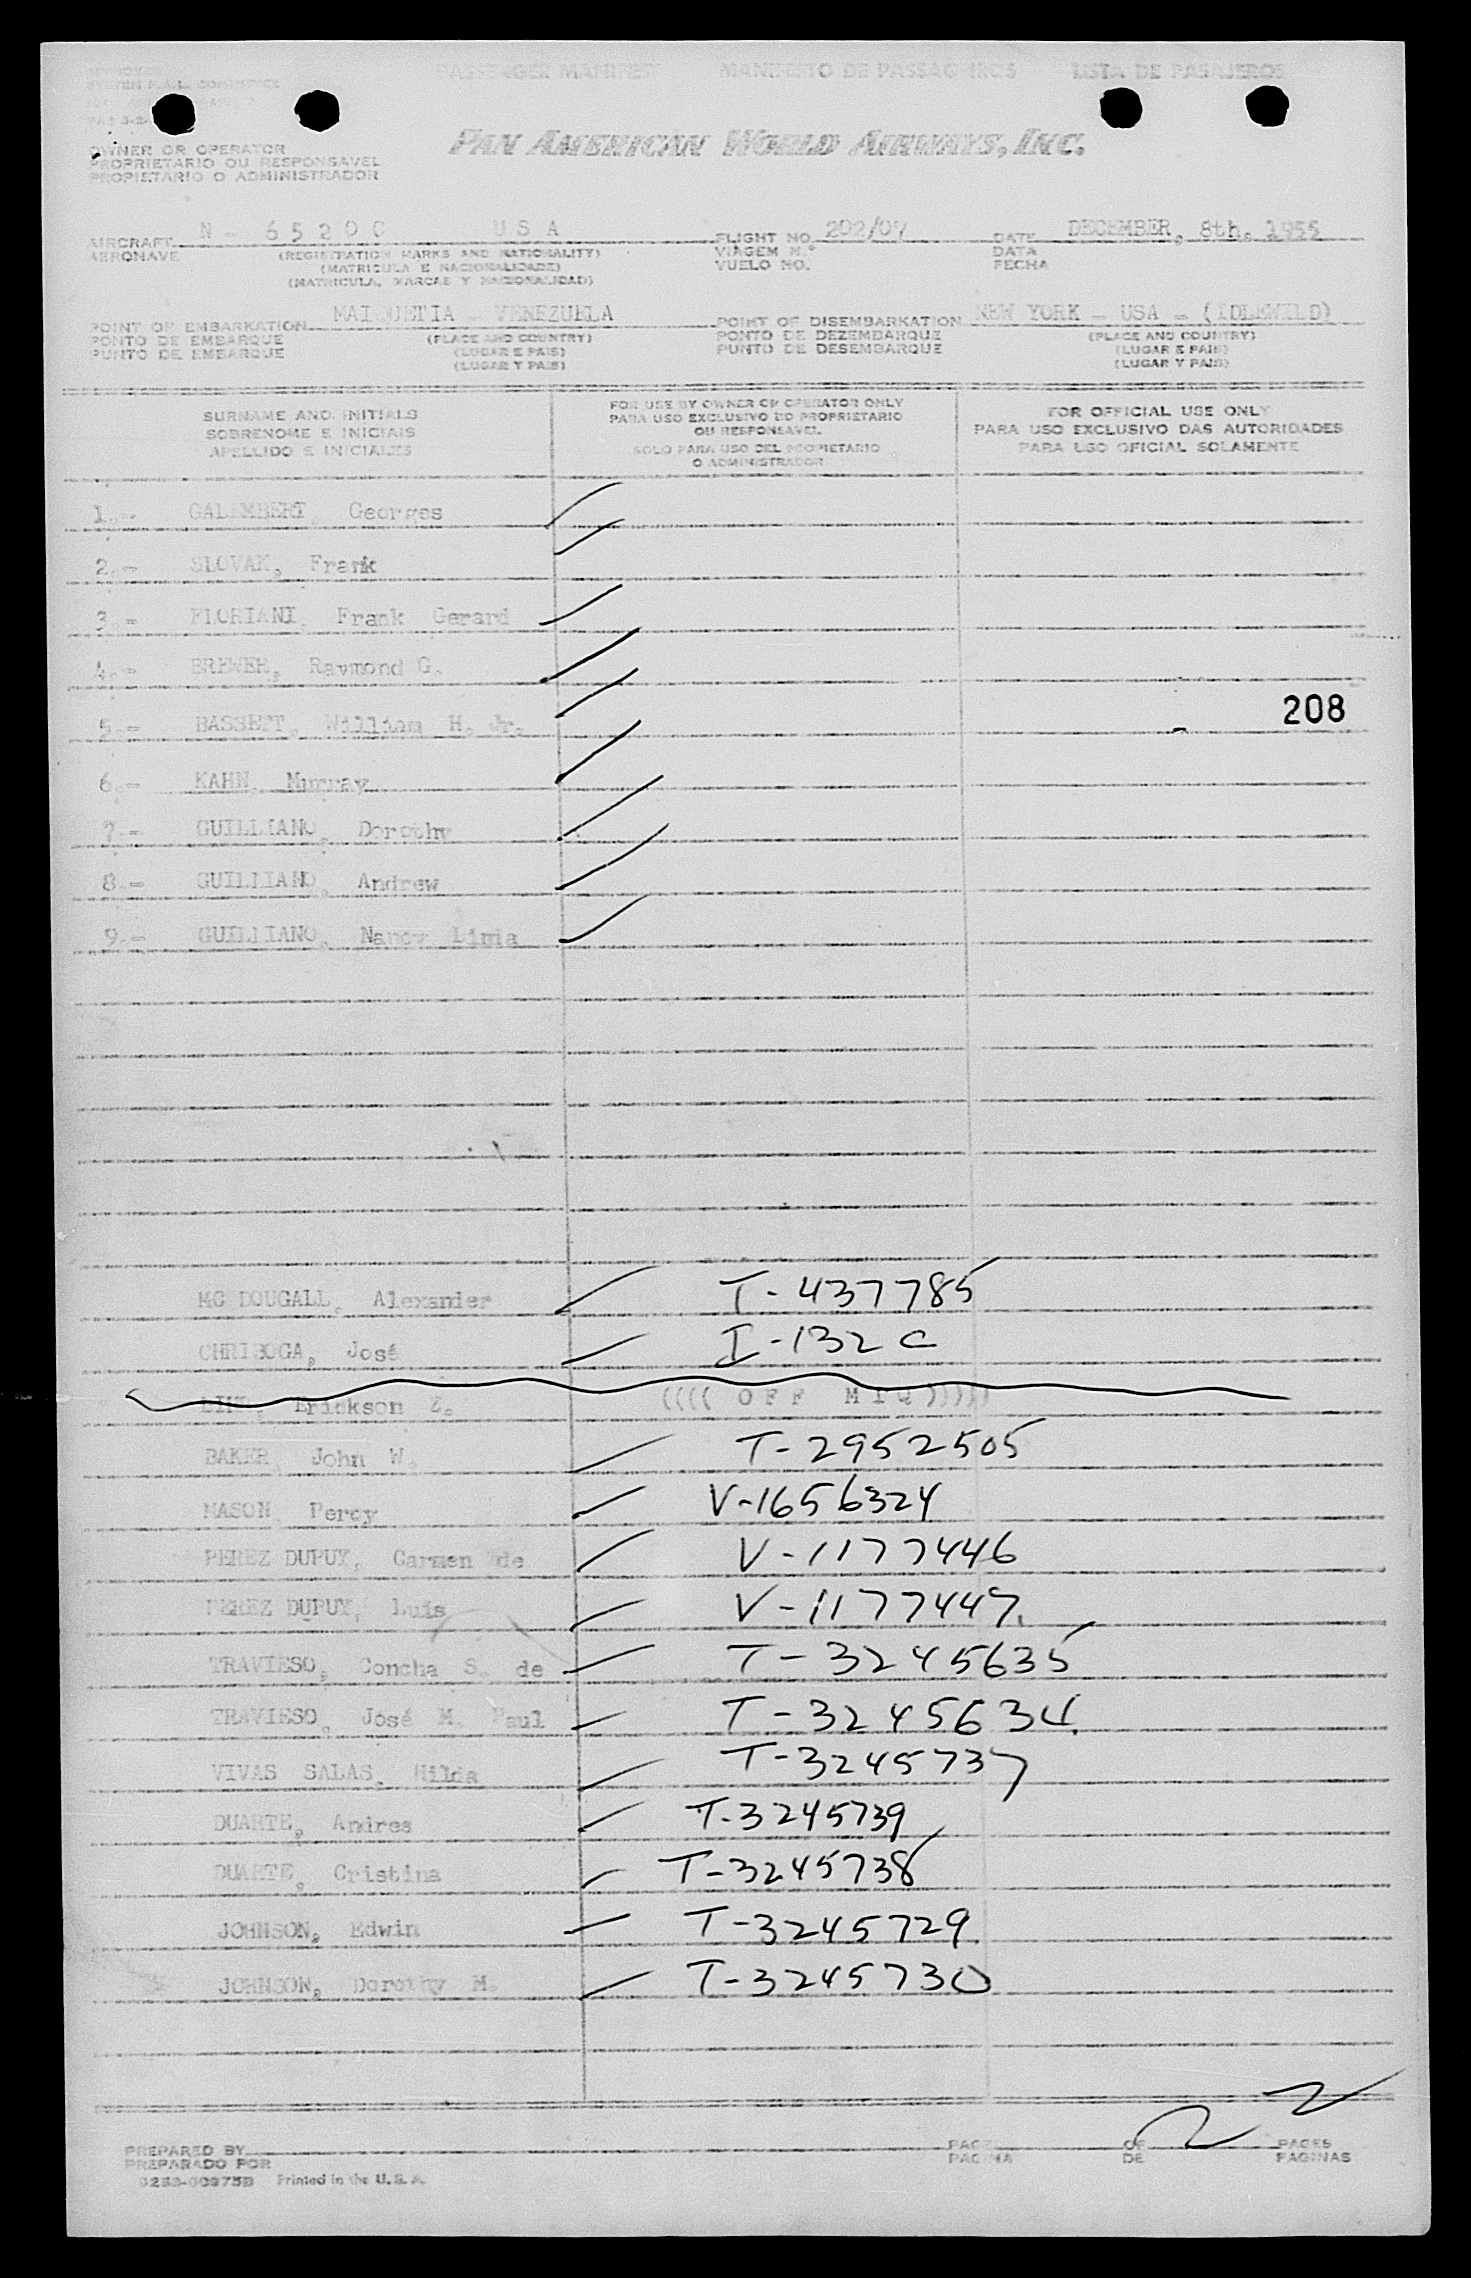 PASSENGER MANIFEST MANIFESTO DE PASSAGEIROS LISTA DE PASAJEROS
PAN AMERICAN WORLD AIRWAYS, INC.
OWNER OR OPERATOR
PROPRIETARIO OU RESPONSAVEL
PROPIETARIO O ADMINISTRADOR
AIRCRAFT N - 6520C USA FLIGHT NO. 202/07 DATE DECEMBER, 8th. 1955
AERONAVE (REGISTRATION MARKS AND NATIONALITY) VIAGEM N.º DATA
(MATRICULA E NACIONALIDADE) VUELO NO. FECHA
(MATRICULA, MARCAS Y NACIONALIDAD)
POINT OF EMBARKATION MAIQUETIA - VENEZUELA POINT OF DISEMBARKATION NEW YORK - USA - (IDLEWILD)
PONTO DE EMBARQUE (PLACE AND COUNTRY) PONTO DE DEZEMBARQUE (PLACE AND COUNTRY)
PUNTO DE EMBARQUE (LUGAR E PAIS) PUNTO DE DESEMBARQUE (LUGAR E PAIS)
(LUGAR Y PAIS) (LUGAR Y PAIS)
SURNAME AND INITIALS
SOBRENOME E INICIAIS
APELLIDO E INICIALES
FOR USE BY OWNER OR OPERATOR ONLY
PARA USO EXCLUSIVO DO PROPRIETARIO
OU RESPONSAVEL
SOLO PARA USO DEL PROPIETARIO
O ADMINISTRADOR
FOR OFFICIAL USE ONLY
PARA USO EXCLUSIVO DAS AUTORIDADES
PARA USO OFICIAL SOLAMENTE
1.- GALEMBERT, Georges
2.- SLOVAK, Frank
3.- FLORIANI, Frank Gerard
4.- BREWER, Raymond G.
5.- BASSETT, William H. Jr.
208
6.- KAHN, Murray
7.- GUILLIANO, Dorothy
8.- GUILLIANO, Andrew
9.- GUILLIANO, Nancy Linda
MC DOUGALL, Alexander T-437785
CHRIBOGA, José I-132 C
Erickson Z. (((( OFF MIQ)))))
BAKER, John W. T-2952505
MASON, Percy V-1656324
PEREZ DUPUY, Carmen de V-1177446
PEREZ DUPUY, Luis V-1177447.
TRAVIESO, Concha S. de T-3245635
TRAVIESO, José M. Paul T-3245634.
VIVAS SALAS, Hilda T-3245737
DUARTE, Andres T-3245739
DUARTE, Cristina T-3245738
JOHNSON, Edwin T-3245729.
JOHNSON, Dorothy M. T-3245730
PREPARED BY PAGE 2 OF 2 PAGES
PREPARADO POR PAGINA DE PAGINAS
Printed in the U. S. A.